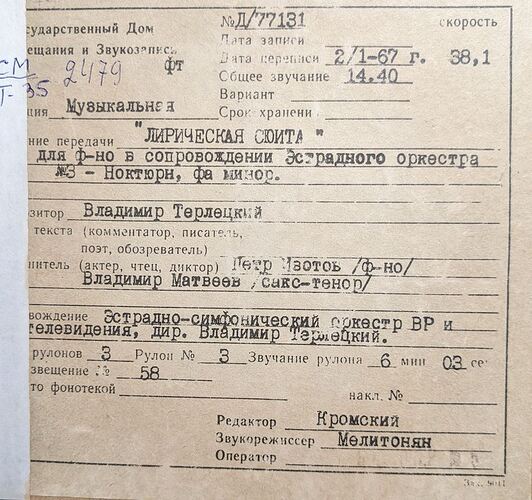 сударственный Дом №Д/77131 скорость
ещания и Звукозапись Дата записи
СМ 2479 фт Дата переписи 2/1-67 г. 38,1
Общее звучание 14.40
Т-35 Вариант
ция Музыкальная Срок хранени
ние передачи "ЛИРИЧЕСКАЯ СЮИТА"
для ф-но в сопровождении Эстрадного оркестра
№3 - Ноктюрн, фа минор.
зитор Владимир Терлецкий
текста (комментатор, писатель,
поэт, обозреватель)
нитель (актер, чтец, диктор) Петр /ф-но/
Владимир Матвеев /сакс-тенор/
вождение Эстрадно-симфонический оркестр ВР и
телевидения, дир. Владимир Терлецкий.
рулонов 3 Рулон № 3 Звучание рулона 6 мин 03 се
звещение № 58
то фонотекой накл. №
Редактор Кромский
Звукорежиссер Мелитонян
Оператор